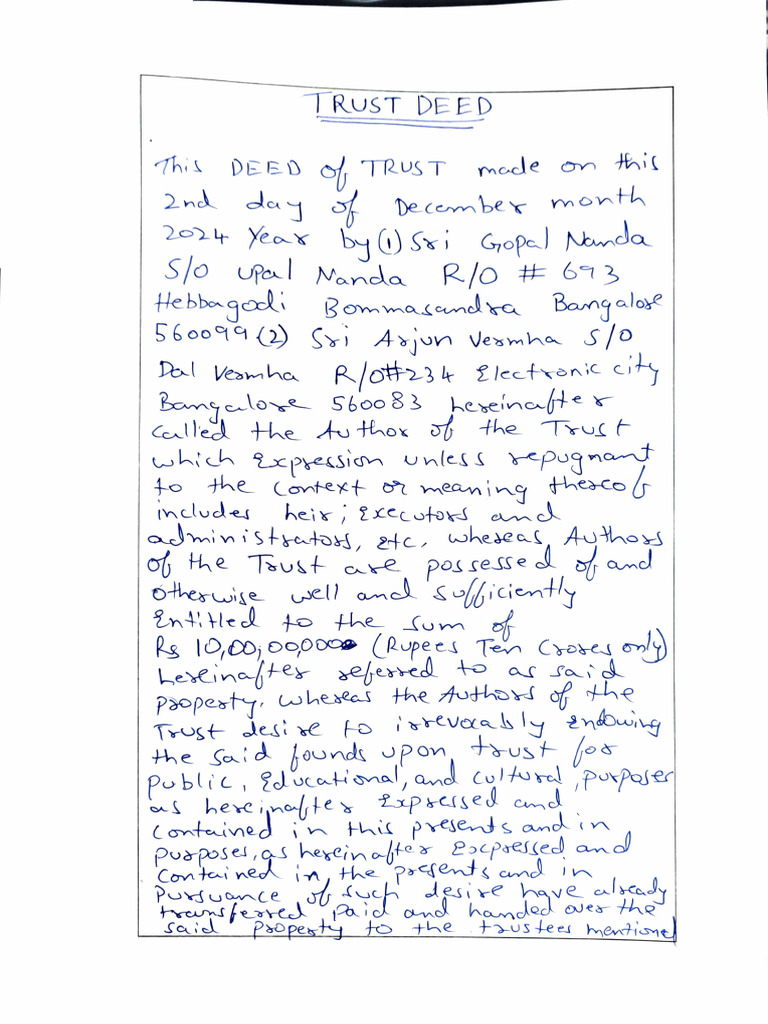 TRUST DEED
This DEED of TRUST made on this
2nd day of December month
2024 Year by (1) Sri Gopal Nanda
S/O Upal Nanda R/O # 693
Hebbagodi Bommasandra Bangalore
560099 (2) Sri Arjun Vermha S/O
Dal Vermha R/O#234 Electronic city
Bangalore 560083 hereinafter
called the Author of the Trust
which Expression unless repugnant
to the context or meaning thereof
includes heir; Executors and
administrators, etc, whereas Authors
of the Trust are possessed of and
otherwise well and sufficiently
Entitled to the sum of
Rs 10,00,00,000 (Rupees Ten Crores only)
hereinafter referred to as said
property, whereas the Authors of the
Trust desire to irrevocably Endowing
the said founds upon trust for
public, Educational, and cultural, purposes
as hereinafter Expressed and
contained in this presents and in
purposes, as hereinafter Expressed and
contained in the presents and in
pursuance of such desire have already
transferred paid and handed over the
said property to the trustees mentioned